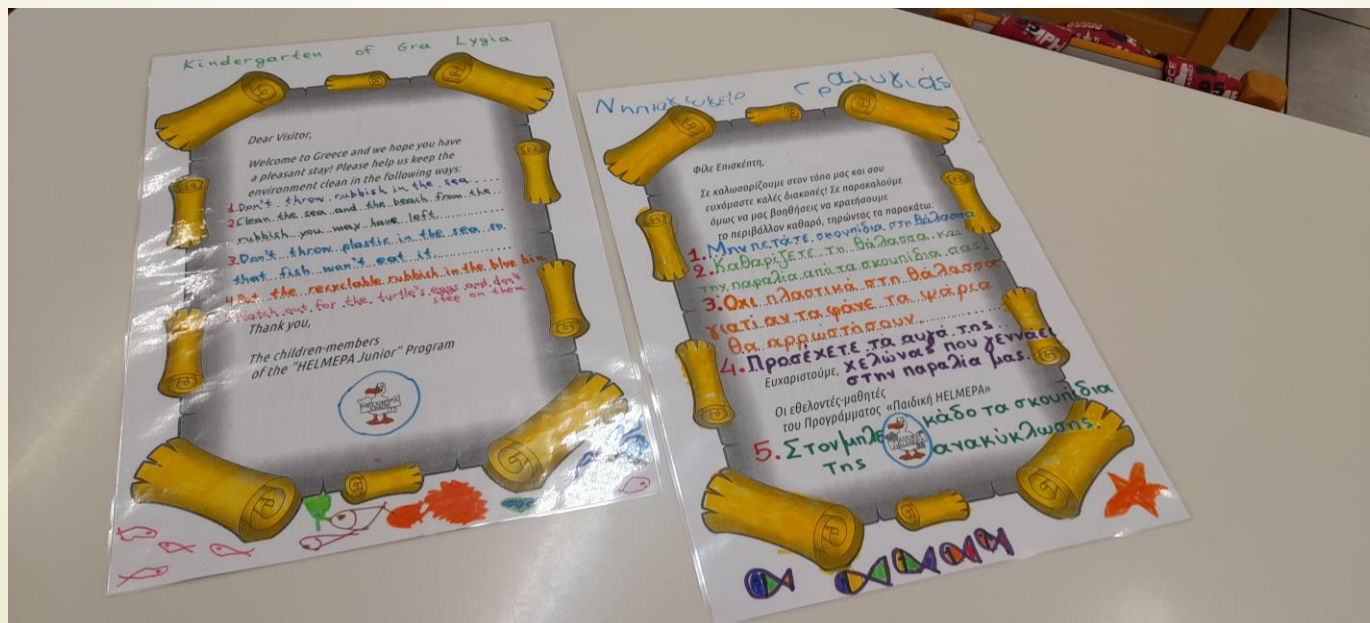 Kindergarten of Gra Lygia
Dear Visitor,
Welcome to Greece and we hope you have
a pleasant stay! Please help us keep the
environment clean in the following ways:
1. Don't throw rubbish in the sea
2 Clean the sea and the beach from the
rubbish you may have left
3. Don't throw plastic in the sea so
that fish won't eat it
4. Put the recyclable rubbish in the blue bin
Watch out for the turtle's eggs and don't
step on them.
Thank you,
The children-members
of the "HELMEPA Junior" Program
Νηπιαγωγείο Γραλυγιάς
Φίλε Επισκέπτη,
Σε καλωσορίζουμε στον τόπο μας και σου
ευχόμαστε καλές διακοπές! Σε παρακαλούμε
όμως να μας βοηθήσεις να κρατήσουμε
το περιβάλλον καθαρό, τηρώντας τα παρακάτω:
1. Μην πετάτε σκουπίδια στη θάλασσα
2. Καθαρίζετε τη θάλασσα και
την παραλία από τα σκουπίδια σας!
3. Όχι πλαστικά στη θάλασσα
γιατί αν τα φάνε τα ψάρια
θα αρρωστήσουν
4. Προσέχετε τα αυγά της
Ευχαριστούμε, χελώνας που γεννάει
στην παραλία μας.
Οι εθελοντές-μαθητές
του Προγράμματος «Παιδική HELMEPA»
5. Στον μπλε κάδο τα σκουπίδια
της ανακύκλωσης.